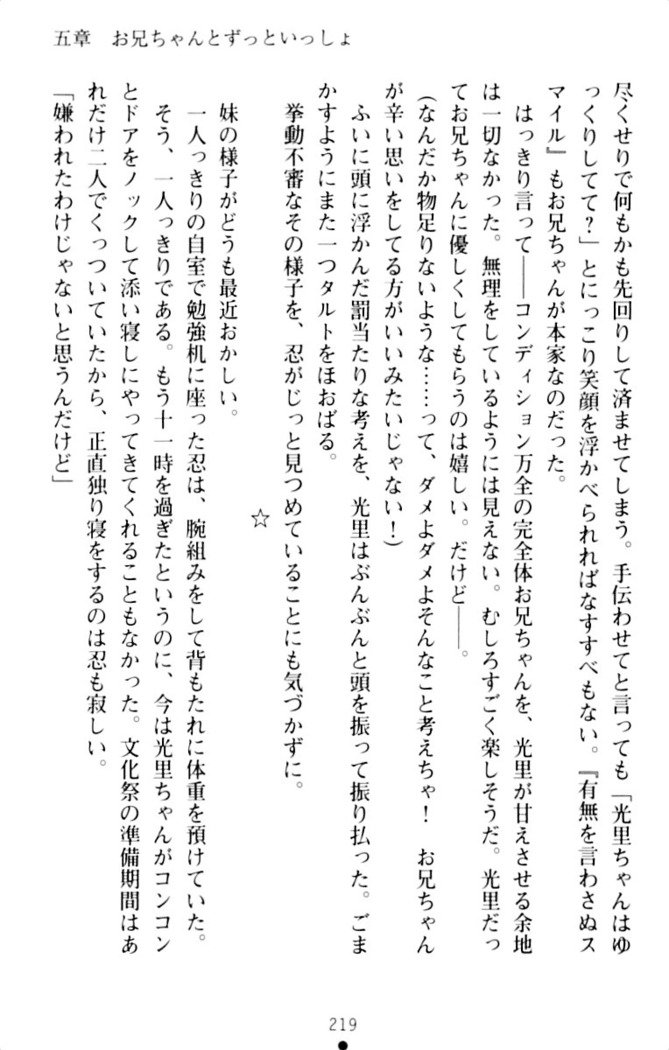 五章　お兄ちゃんとずっといっしょ
尽くせりで何もかも先回りして済ませてしまう。手伝わせてと言っても「光里ちゃんはゆ
っくりしてて？」とにっこり笑顔を浮かべられればなすすべもない。『有無を言わさぬス
マイル』もお兄ちゃんが本家なのだった。
　はっきり言って――コンディション万全の完全体お兄ちゃんを、光里が甘えさせる余地
は一切なかった。無理をしているようには見えない。むしろすごく楽しそうだ。光里だっ
てお兄ちゃんに優しくしてもらうのは嬉しい。だけど――。
（なんだか物足りないような……って、ダメよダメよそんなこと考えちゃ！　お兄ちゃん
が辛い思いをしてる方がいいみたいじゃない！）
　ふいに頭に浮かんだ罰当たりな考えを、光里はぶんぶんと頭を振って振り払った。ごま
かすようにまた一つタルトをほおばる。
　挙動不審なその様子を、忍がじっと見つめていることにも気づかずに。
☆
　妹の様子がどうも最近おかしい。
　一人っきりの自室で勉強机に座った忍は、腕組みをして背もたれに体重を預けていた。
　そう、一人っきりである。もう十一時を過ぎたというのに、今は光里ちゃんがコンコン
とドアをノックして添い寝しにやってきてくれることもなかった。文化祭の準備期間はあ
れだけ二人でくっついていたから、正直独り寝をするのは忍も寂しい。
「嫌われたわけじゃないと思うんだけど」
219